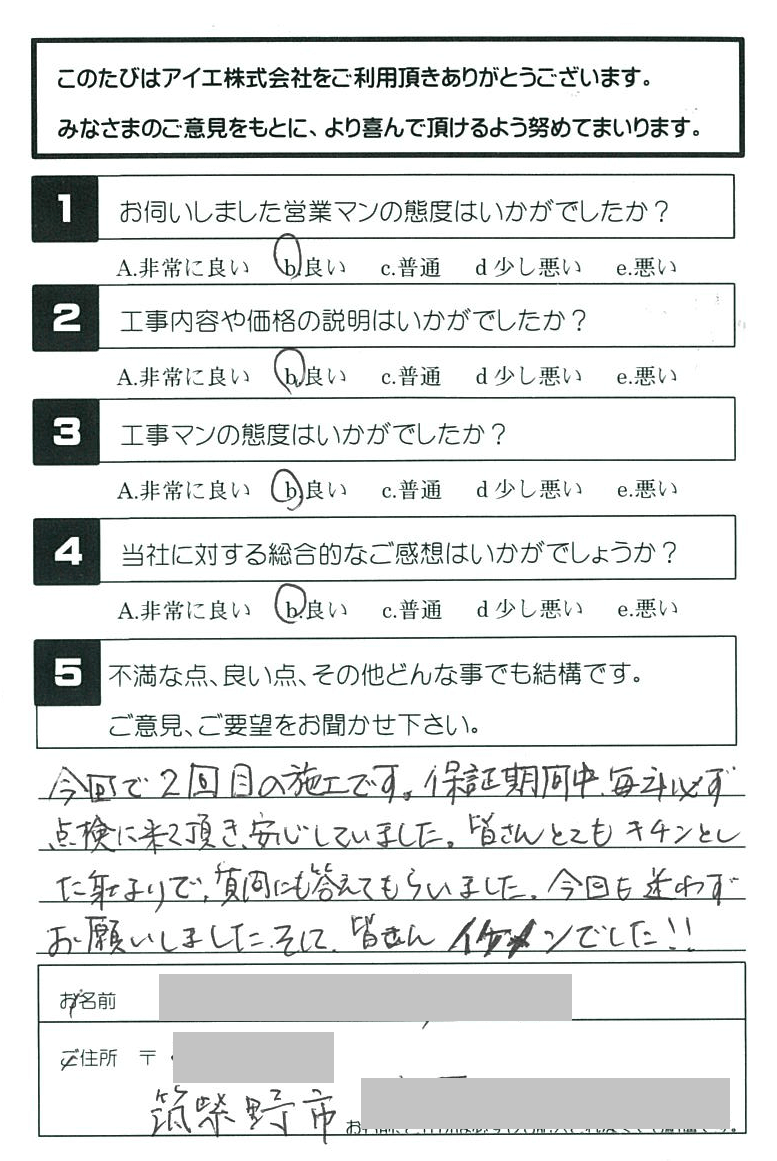 このたびはアイエ株式会社をご利用頂きありがとうございます。
みなさまのご意見をもとに、より喜んで頂けるよう努めてまいります。
1 お伺いしました営業マンの態度はいかがでしたか？
A.非常に良い b.良い c.普通 d 少し悪い e.悪い
2 工事内容や価格の説明はいかがでしたか？
A.非常に良い b.良い c.普通 d 少し悪い e.悪い
3 工事マンの態度はいかがでしたか？
A.非常に良い b.良い c.普通 d 少し悪い e.悪い
4 当社に対する総合的なご感想はいかがでしょうか？
A.非常に良い b.良い c.普通 d 少し悪い e.悪い
5 不満な点、良い点、その他どんな事でも結構です。
ご意見、ご要望をお聞かせ下さい。
今回で2回目の施工です。保証期間中、毎年必ず
点検に来て頂き、安心していました。皆さんとてもキチンとし
た身なりで、質問にも答えてもらいました。今回も迷わず
お願いしました。そして、皆さんイケメンでした!!
お名前
ご住所 〒
筑紫野市